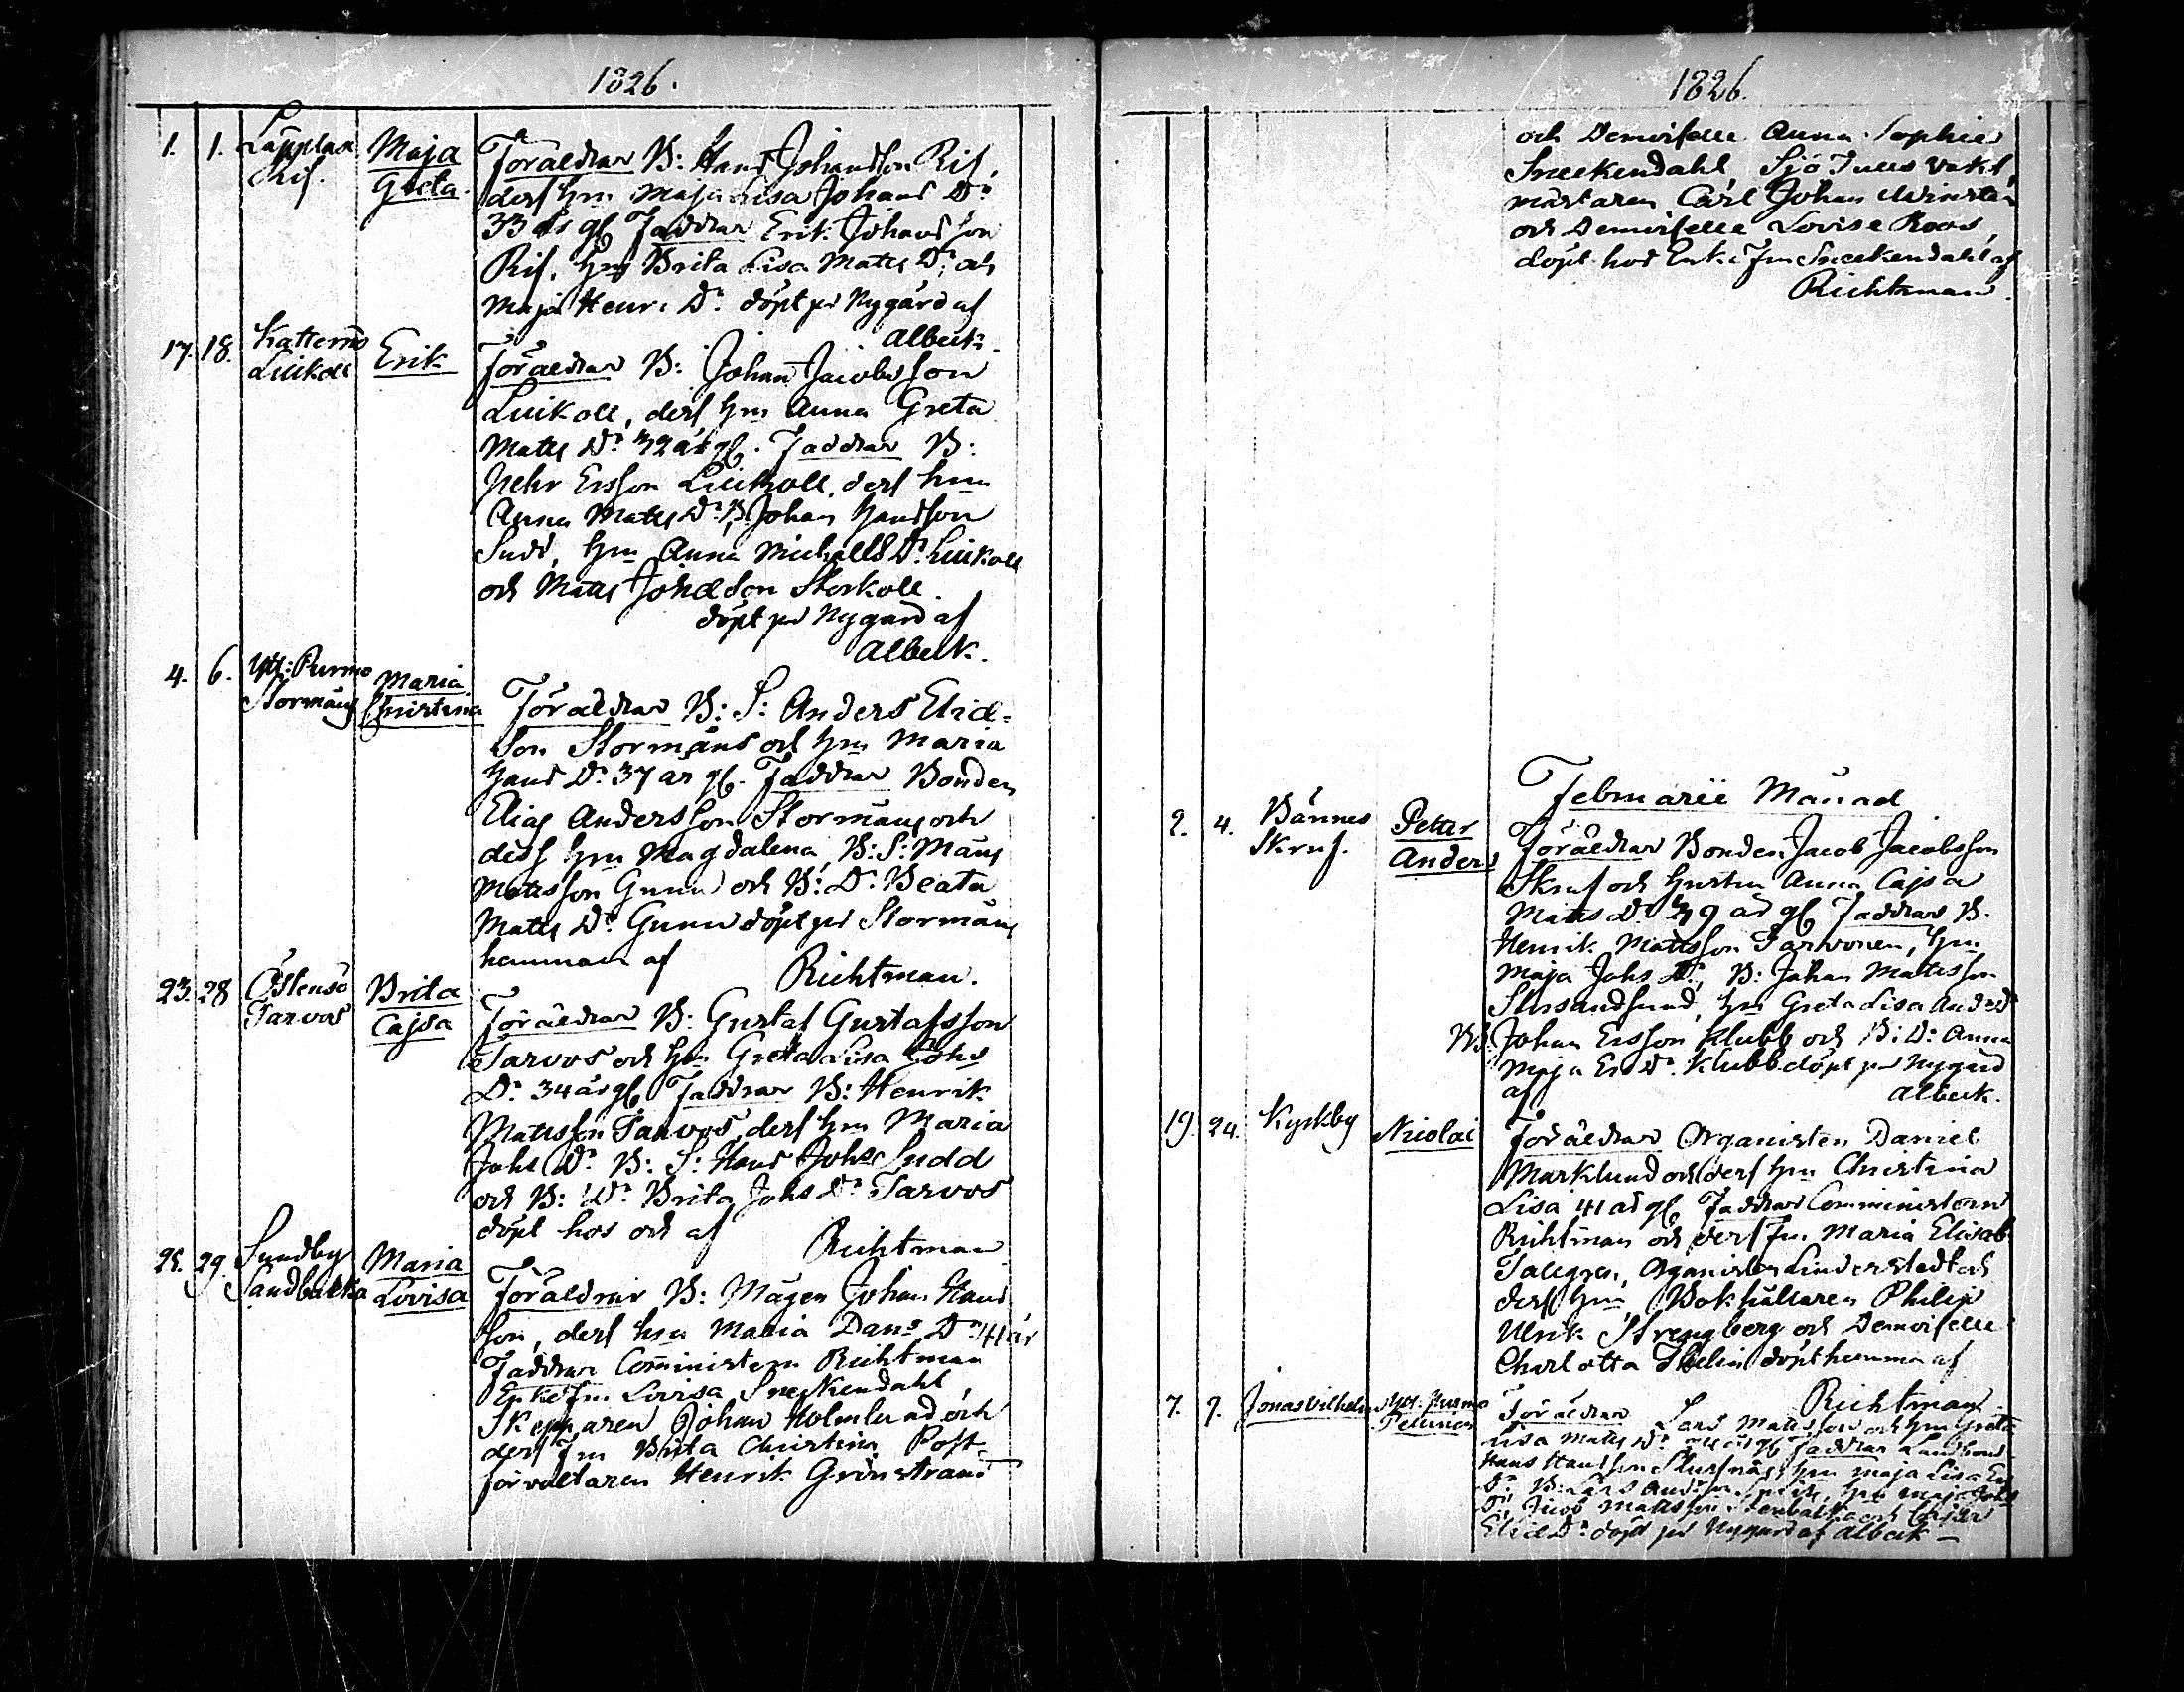 1826.
1. 1. Lappfors Rif. Maja Greta.
Föräldrar B: Hans Johansson Rif,
derss hm Maja Lisa Johans Dr
33 års gl Faddrar Erik Johansson
Rif, hm Brita Lisa Matts Dr och
Maja Henr: Dr döpt på Nygård af
Albeck.
17. 18. Katternö Luikoll Erik
Föräldrar B: Johan Jacobsson
Luikoll, derss hm Anna Greta
Matts Dr 32 års gl. Faddrar B:
Pehr Ersson Luikoll, derss hm
Anna Matts Dr, B: Johan Hansson
Sudd, hm Anna Michells Dr Luikoll
och Matts Johansson Storkoll.
döpt på Nygård af
Albeck.
4. 6. Ytt: Purmo Stormåns Maria Christina
Föräldrar B: S: Anders Elias-
son Stormåns och hm Maria
Hans Dr 37 år gl. Faddrar Bonden
Elias Andersson Stormåns och
dess hm Magdalena, B: S: Måns
Mattsson Gunnar och B: Dr Beata
Matts Dr Gunnar döpt på Stormåns
hemman af Richtman.
23. 28 Östensö Tarvos Brita Cajsa
Föräldrar B: Gustaf Gustafsson
Tarvos och hm Greta Lisa Johs
Dr 34 års gl Faddrar B: Henrik
Mattsson Tarvos, derss hm Maria
Johs Dr B: S: Hans Johss Sudd
och B: Dr Brita Johs Dr Tarvos
döpt hos och af Richtman
25. 29. Sundby Sandbacka Maria Lovisa
Föräldrar B: Mågen Johan Hans
son, derss hm Maria Dans Dr 41 år
Faddrar Comministern Richtman
Enkefru Lovisa Sneckendahl,
Skepparen Johan Holmlund och
derss fru Brita Christina, Post-
förvaltaren Henrik Grönstrand
1826.
och Demoiselle Anna Sophia
Sneckendahl, Sjö Tulls Vakt,
mästaren Carl Johan Winsten
och Demoiselle Lovisa Roos,
döpt hos Enke Fru Sneckendahl af
Richtman.
Februarii Månad
2. 4. Bännes Skruf. Petter Anders
Föräldrar Bonden Jacob Jacobsson
Skruf och hustru Anna Cajsa
Matts Dr 39 år gl Faddrar B.
Henrik Mattsson Tarvonen, hm
Maja Johs Dr, B: Johan Mattsson
Slussandsund, hm Greta Lisa And: Dr
B: Johan Ersson Klubb och B: D: Anna
Maja Ers Dr Klubb döpt på Nygård
af Albeck.
19. 24. Kyrkby Nicolai
Föräldrar Organisten Daniel
Marklund och derss hm Christina
Lisa 41 år gl Faddrar Comministern
Richtman och derss Fru Maria Elisab.
Tallgren, Organisten Linderstedt och
derss hm, Bokhållaren Philip
Ulrik Strengberg och Demoiselle
Charlotta Thelin döpt hemma af
Richtman
7. 9. Jonas Vilhelm Ytt. Purmo
Föräldrar Lars Mattsson och hm Greta
Lisa Matts Dr års gl Faddrar
Hans Hansson hm Maja Lisa
B: Lars Andersson hm Maja Johs
Dr, Jacob Mattsson Stenbacka och Cajsa
Elias Dr döpt på Nygård af Albeck